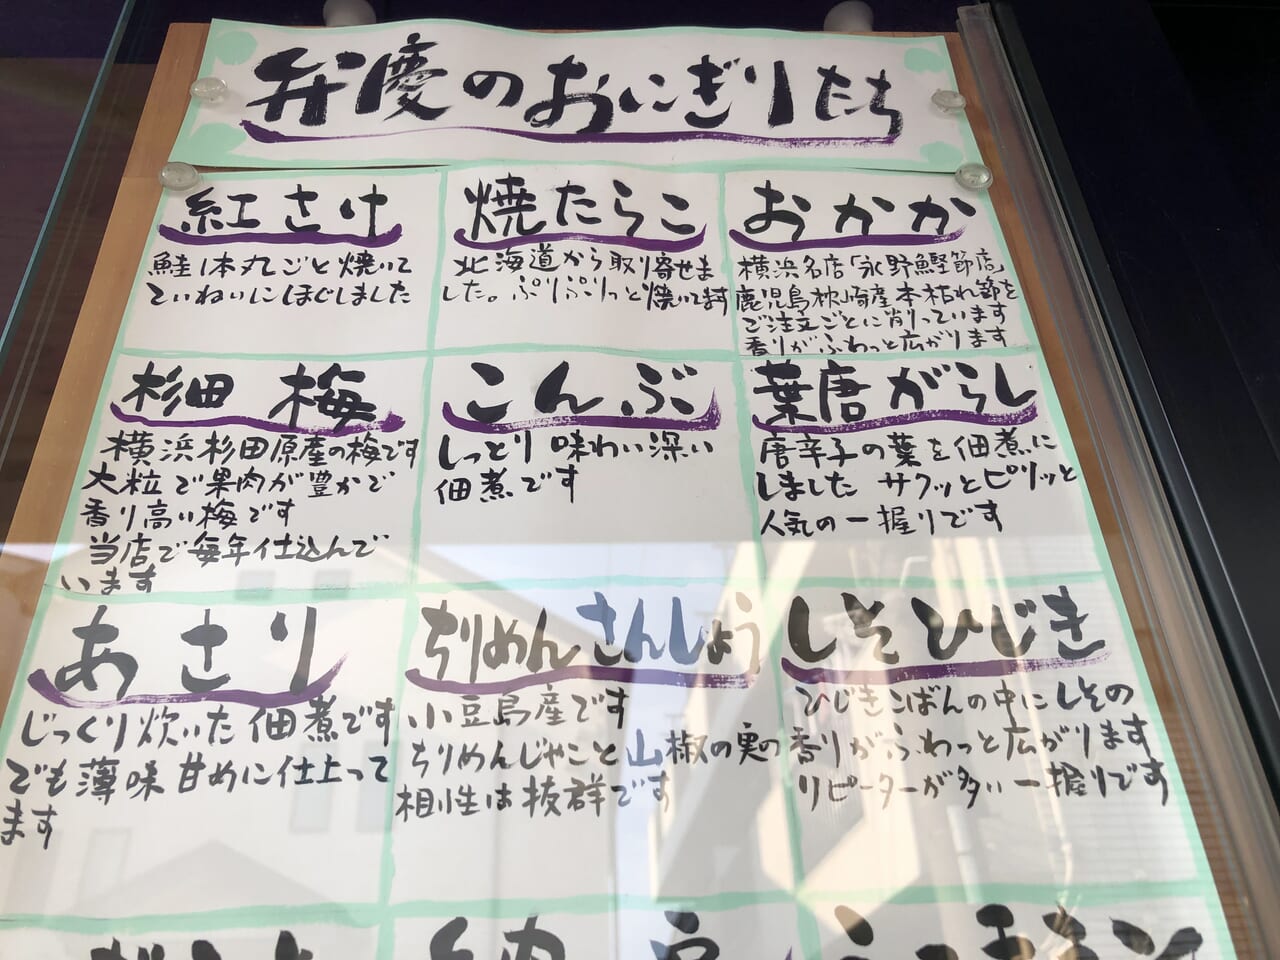 弁慶のおにぎりたち
紅さけ
鮭1本丸ごと焼いて
ていねいにほぐしました
焼たらこ
北海道から取り寄せま
した。ぷりぷりっと焼いてます
おかか
横浜名店「永野鰹節店」
鹿児島枕崎産本枯れ節を
ご注文ごとに削っています
香りがふわっと広がります
杉田梅
横浜杉田原産の梅です
大粒で果肉が豊かで
香り高い梅です
当店で毎年仕込んで
います
こんぶ
しっとり味わい深い
佃煮です
葉唐がらし
唐辛子の葉を佃煮に
しました サクッとピリッと
人気の一握りです
あさり
じっくり炊いた佃煮です
でも薄味甘めに仕上って
ます
ちりめんさんしょう
小豆島産です
ちりめんじゃこと山椒の実の
相性は抜群です
しそひじき
ひじきごはんの中にしその
香りがふわっと広がります
リピーターが多い一握りです